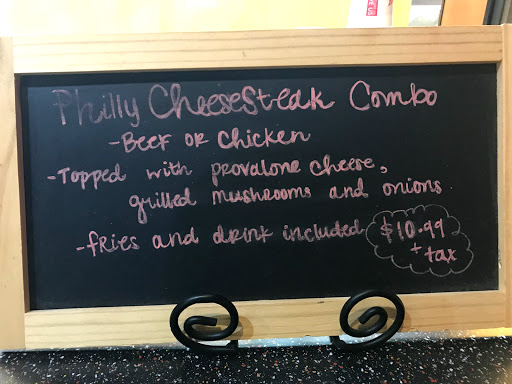 Philly CheeseSteak Combo
-Beef or Chicken
-Topped with provalone cheese,
grilled mushrooms and onions
-fries and drink included $10.99
+ tax